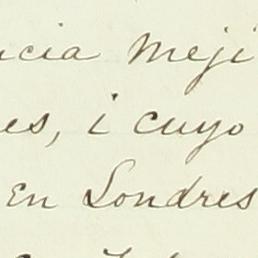 ncia Meji
es, i cuyo
en Londres